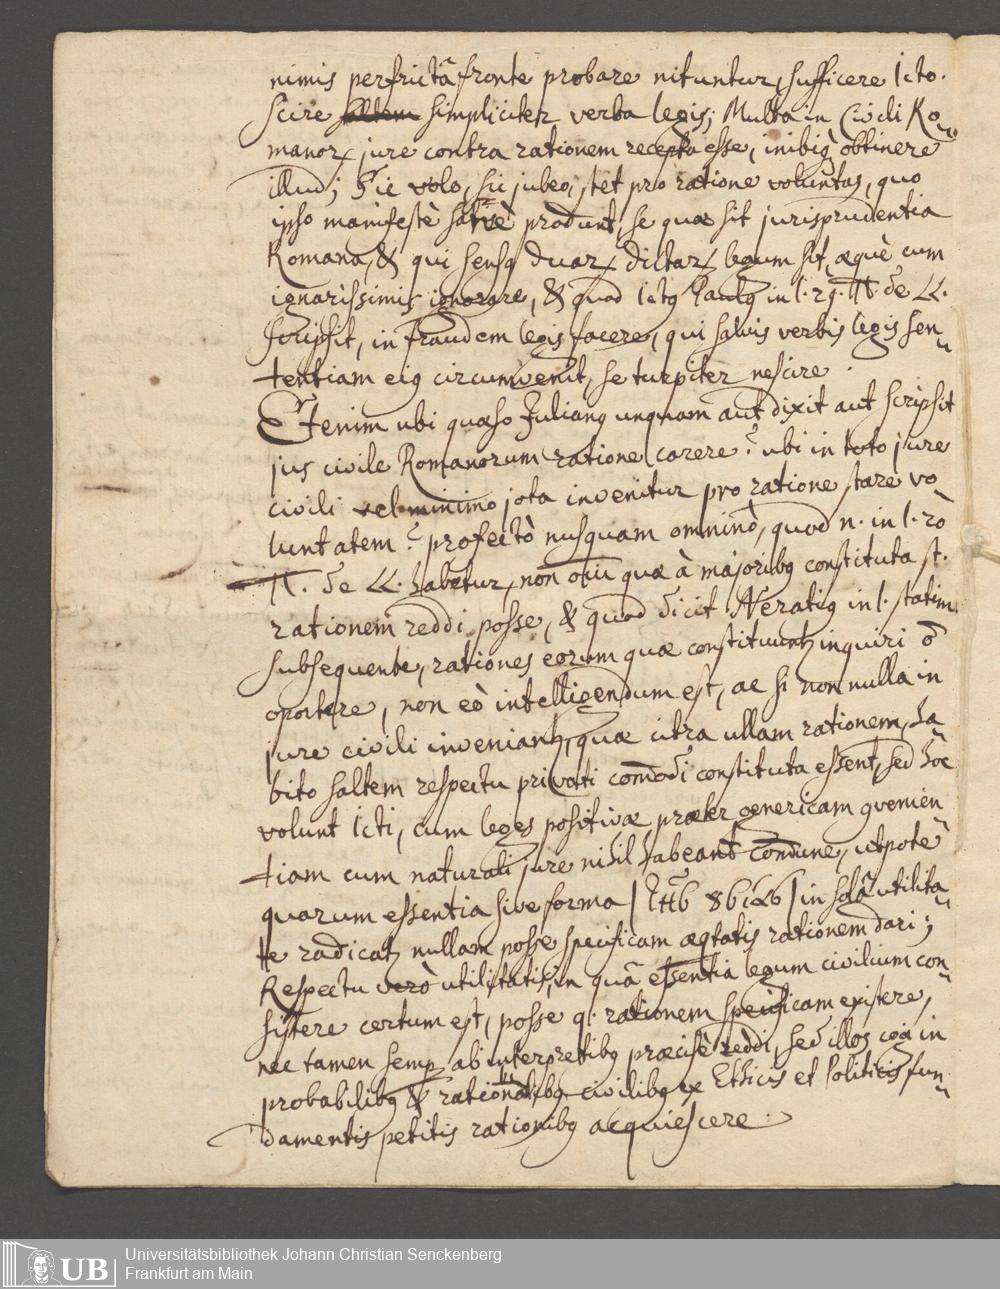 nimis perfrictâ fronte probare nituntur, sufficere Icto.
Scire saltem simpliciter verba legis; Multa in Civili Ro-
manor. jure contra rationem recepta esse, inibiq obtinere
illud; Sic volo, sic jubeo, stet pro ratione voluntas, quo
ipso manifestè satis produnt, se quæ sit jurisprudentia
Romana, & qui sensq duar. dictar. legum sit, æquè cum
ignarissimis ignorare, & quod Ictq Paulq in l. 29. ff. de LL.
scripsit, in fraudem legis facere, qui salvis verbis legis sen-
tentiam eiq circumvenit, se turpiter nescire.
Etenim ubi quæso Julianq unquam aut dixit aut scripsit
jus civile Romanorum ratione carere? ubi in toto jure
civili vel minimo jota invenitur pro ratione stare vo
luntatem? profectò nusquam omninò, quod n. in l. 20
ff. de LL. habetur, non oiu quæ à majoribq constituta st.
rationem reddi posse, & quod dicit Neratiq in l. statim
subsequente, rationes eorum quæ constituunt inquiri ō
oportere, non eò intelligendum est, ac si non nulla in
jure civili inveniant, quæ citra ullam rationem, ha-
bito saltem respectu privati comodi constituta essent, sed hoc
volunt Icti, cum leges positivæ præter genericam gvenien-
tiam cum naturali jure nihil habeant comune, utpote
quarum essentia sive forma in solâ utilita-
te radicat, nullam posse specificam æqtatis rationem dari;
Respectu verò utilitatis, in quâ essentia legum civilium con-
sistere certum est, posse q. rationem specificam existere,
nec tamen semp. ab interpretibq præcisè reddi, sed illos cogi in
probabilibq & rationalibq civilibq ex Ethicis et Politicis fun-
damentis petitis rationibq acquiescere.
UB
Universitätsbibliothek Johann Christian Senckenberg
Frankfurt am Main